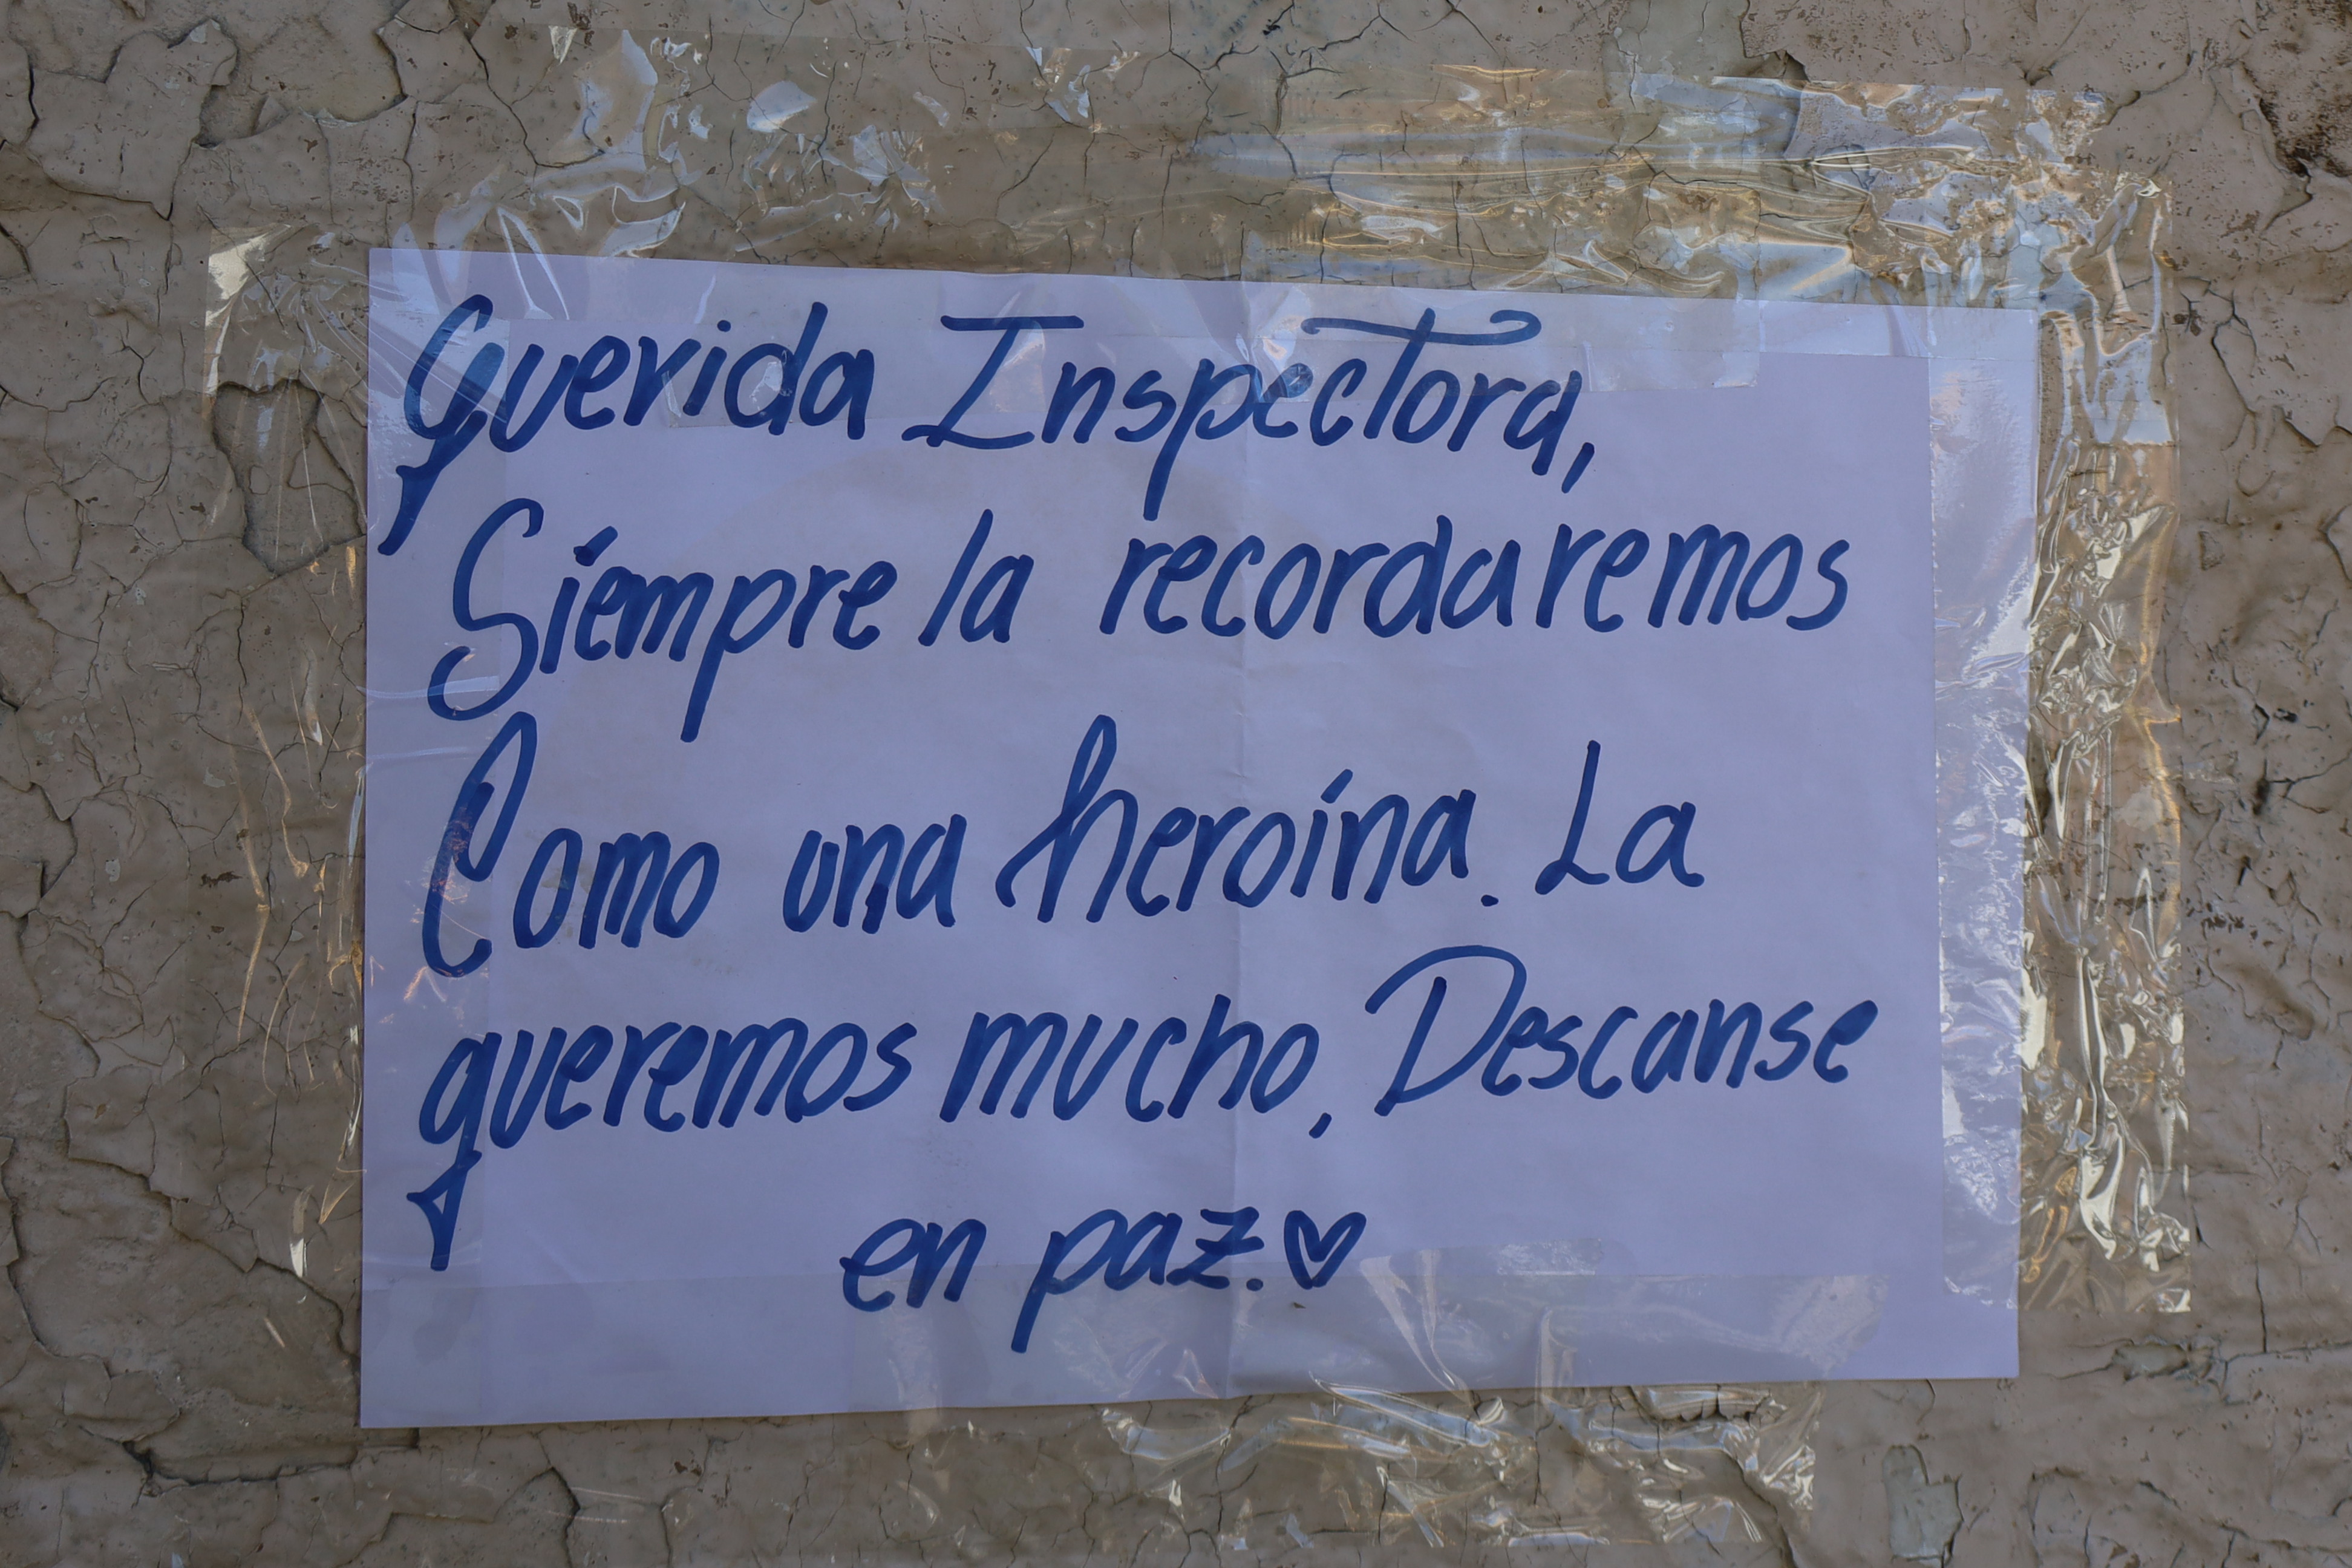 Querida Inspectora,
Siempre la recordaremos
Como una heroína. La
queremos mucho, Descanse
en paz.♥